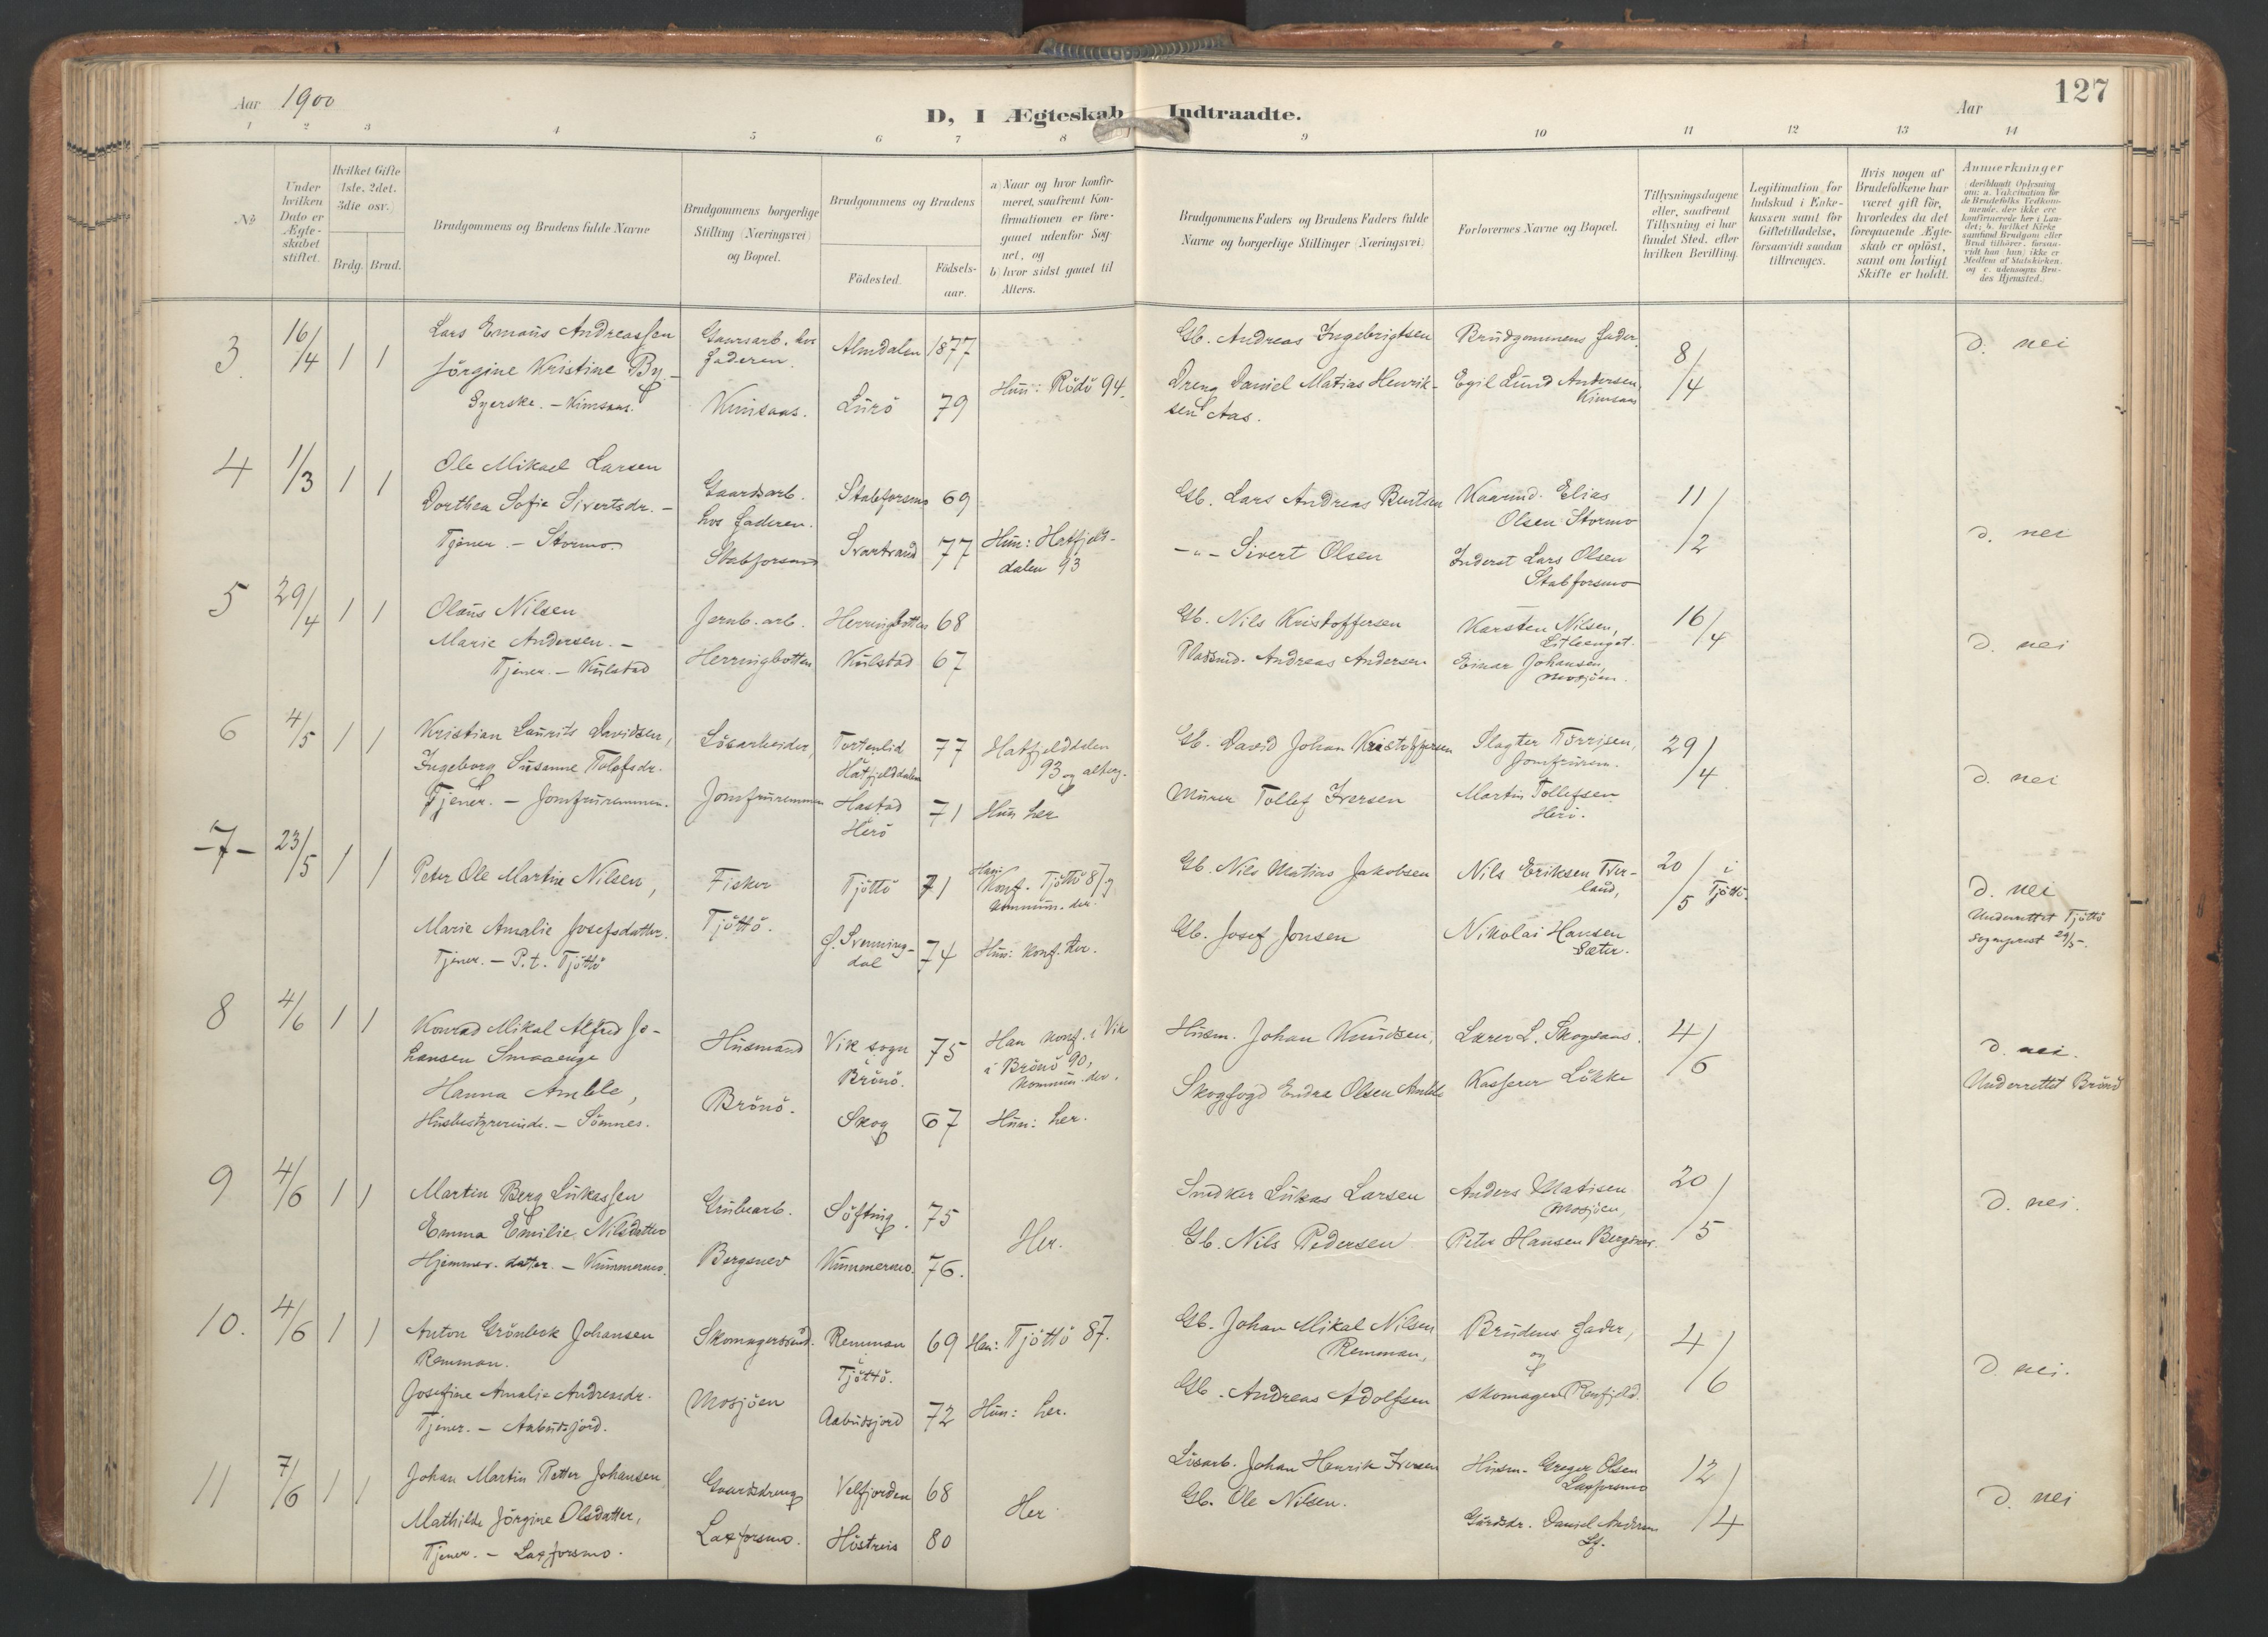 Aar 1900
D, I Ægteskab Indtraadte.
Aar
127
1 2 3 4 5 6 7 8 9 10 11 12 13 14
No
Under hvilken Dato er Ægteskabet stiftet.
Hvilket Gifte (1ste, 2det. 3die osv.)
Brdg. Brud.
Brudgommens og Brudens fulde Navne
Brudgommens borgerlige Stilling (Næringsvei) og Bopæl.
Brudgommens og Brudens
Födested.
Födselsaar.
a) Naar og hvor konfirmeret, saafremt Konfirmationen er foregaaet udenfor Sognet, og
b) hvor sidst gaaet til Alters.
Brudgommens Faders og Brudens Faders fulde Navne og borgerlige Stillinger (Næringsvei)
Forlovernes Navne og Bopæl.
Tillysningsdagene eller, saafremt Tillysning ei har fundet Sted, efter hvilken Bevilling.
Legitimation for Indskud i Enkekassen samt for Giftetilladelse, forsaavidt saadan tiltrænges.
Hvis nogen af Brudefolkene har været gift för, hvorledes da det foregaaende Ægteskab er oplöst, samt om lovligt Skifte er holdt.
Anmerkninger
(deriblandt Oplysning om: a. Vakcination for de Brudefolks Vedkommende, der ikke ere konfirmerede her i Landet; b. hvilket Kirkesamfund Brudgom eller Brud tilhörer, forsaavidt han (hun) ikke er Medlem af Statskirken, og c. udensogns Brudes Hjemsted.
3 16/4 1 1
Lars Emaüs Andreassen
Jörgine Kristine By -
Syerske. - Kimsaas.
Gaardsarb. hos
faderen.
Kimsaas.
Almdalen 1877
Lürö 79
Hun: Rödö 94.
Gb. Andreas Ingebrigtsen
Dreng Daniel Matias Henrik-
sen Aas.
Brüdgommens fader.
Egil Lünd Andersen
Kimsaas
8/4
d. nei
4 1/3 1 1
Ole Mikael Larsen
Dorthea Sofie Sivertsdr. -
Tjener. - Stormo.
Gaardsarb.
hos faderen.
Stabforsmo
Stabforsmo 69
Svartvand 77
Hun: Hatfjeld-
dalen 93
Gb. Lars Andreas Bentsen
- " - Sivert Olsen
Kaarmd. Elias
Olsen Stormo
Inderst Lars Olsen
Stabforsmo
11/2
d. nei
5 29/4 1 1
Olaüs Nilsen
Marie Andersen. -
Tjener. - Külstad
Jernb. arb.
Herringbotten
Herringbotten 68
Külstad 67
Gb. Nils Kristoffersen
Pladsmd. Andreas Andersen
Karsten Nilsen,
Litleenget.
Einar Johansen,
Mosjöen.
16/4
d. nei
6 4/5 1 1
Kristian Laürits Davidsen,
Ingeborg Süsanne Tolefsdr.
Tjener. - Jomfrüremmen.
Lösarbeider,
Jomfrüremmen
Tortenlid
Hatfjelddalen
77
Hastad
Herö
71
Hatfjelddalen
93 og alterg.
Hun her
Gb. David Johan Kristoffersen
Mürer Tollef Iversen
Slagter Torrisen,
Jomfrürem.
Martin Tollefsen
Herö.
29/4
d. nei
-7- 23/5 1 1
Peter Ole Martin Nilsen,
Marie Amalie Josefsdatter.
Tjener. - P.t. Tjöttö
Fisker
Tjöttö.
Tjöttö 71
Ö. Svenning-
dal 74
Han:
Konf. Tjöttö 87
kommun. der.
Hun: konf. her.
Gb. Nils Matias Jakobsen
Gb. Josef Jonsen
Nils Eriksen Tver-
land,
Nikolai Hansen
Sæter.
20/5 i
Tjöttö.
d. nei
Underrettet Tjöttö
Sogneprest 29/5-.
8 4/6 1 1
Konrad Mikal Alfred Jo-
hansen Smaaenge
Hanna Amble,
Husbestyrerinde. - Sömnes.
Hüsmand
Brönö.
Vik sogn
i
Brönö.
75
Skog 67
Han konf. i Vik
i Brönö 90,
kommun. der.
Hun: her.
Hüsm. Johan Knüdsen,
Skogfogd Endre Olsen Amble
Lærer L. Skogsaas.
Kasserer Lökke
4/6
d. nei.
Underrettet Brönö
9 4/6 1 1
Martin Berg Lükassen
Emma Emilie Nilsdatter
Hjemmev. datter. - Kümmermo.
Grübearb.
Bergsnev
Söfting. 75
Kümmermo. 76.
Her.
Snedker Lükas Larsen
Gb. Nils Pedersen
Anders Matisen
Mosjöen,
Peter Hansen Bergsnev.
20/5
d. nei.
10. 4/6 1 1
Anton Grönbeck Johansen
Remman.
Josefine Amalie Andreasdr.
Tjener. - Aabüdsjord.
Skomagersvend.
Mosjöen
Remman
i
Tjöttö.
69
Aabüdsjord 72
Han: Tjöttö 87.
Hun: her.
Gb. Johan Mikal Nilsen
Remman,
Gb. Andreas Adolfsen
Brüdens fader,
og
skomager Renfjeld.
4/6
d. nei.
11 7/6 1 1
Johan Martin Petter Johansen
Mathilde Jörgine Olsdatter,
Tjener. - Laxforsmo.
Gaardsdreng
Laxforsmo.
Velfjorden 68
Höstreis 80
Her
Lösarb. Johan Henrik Iversen
Gb. Ole Nilsen.
Hüsm. Greger Olsen
Laxforsmo
Gårdsdr. Daniel Andersen
Lf.
12/4
d. nei